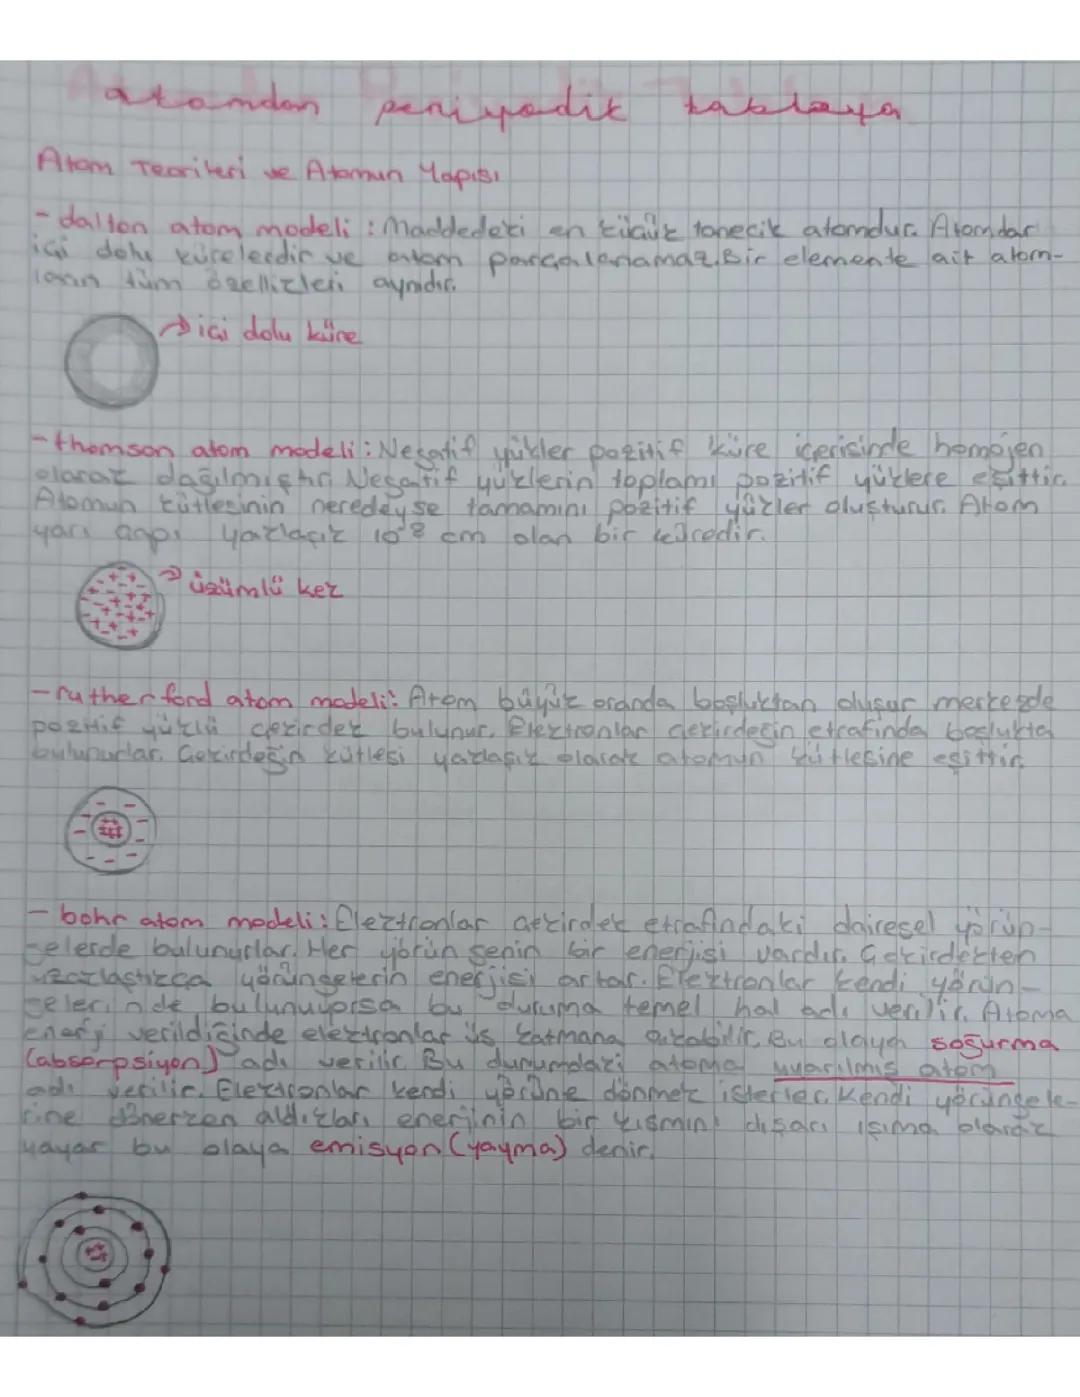 atomdan periyodik tabloya
Atom Teorileri ve Atomun Yapısı
- dalton atom modeli : Maddedeki en küçük tanecik atomdur. Atomlar
içi dolu kürelerdir ve atom parçalanamaz. Bir elemente ait atom-
ların tüm özellikleri aynıdır.
→ içi dolu küre
- thomson atom modeli : Negatif yükler pozitif küre içerisinde homojen
olarak dağılmıştır. Negatif yüklerin toplamı pozitif yüklere eşittir.
Atomun kütlesinin neredeyse tamamını pozitif yükler oluşturur. Atom
yarı çapı yaklaşık 10⁻⁸ cm olan bir küredir.
→ üzümlü kek
- rutherford atom modeli: Atom büyük oranda boşluktan oluşur merkezde
pozitif yüklü çekirdek bulunur. Elektronlar çekirdeğin etrafında boşlukta
bulunurlar. Çekirdeğin kütlesi yaklaşık olarak atomun kütlesine eşittir.
- bohr atom modeli : Elektronlar çekirdek etrafındaki dairesel yörün-
gelerde bulunurlar. Her yörüngenin bir enerjisi vardır. Çekirdekten
uzaklaştıkça yörüngelerin enerjisi artar. Elektronlar kendi yörün-
gelerinde bulunuyorsa bu duruma temel hal adı verilir. Atoma
enerji verildiğinde elektronlar üs katmana çıkabilir. Bu olaya soğurma
(absorpsiyon) adı verilir. Bu durumdaki atoma uyarılmış atom
adı verilir. Elektronlar kendi yörüne dönmek isterler. Kendi yörüngele-
rine dönerken aldıkları enerjinin bir kısmını dışarı ışıma olarak
yayar bu olaya emisyon (yayma) denir.